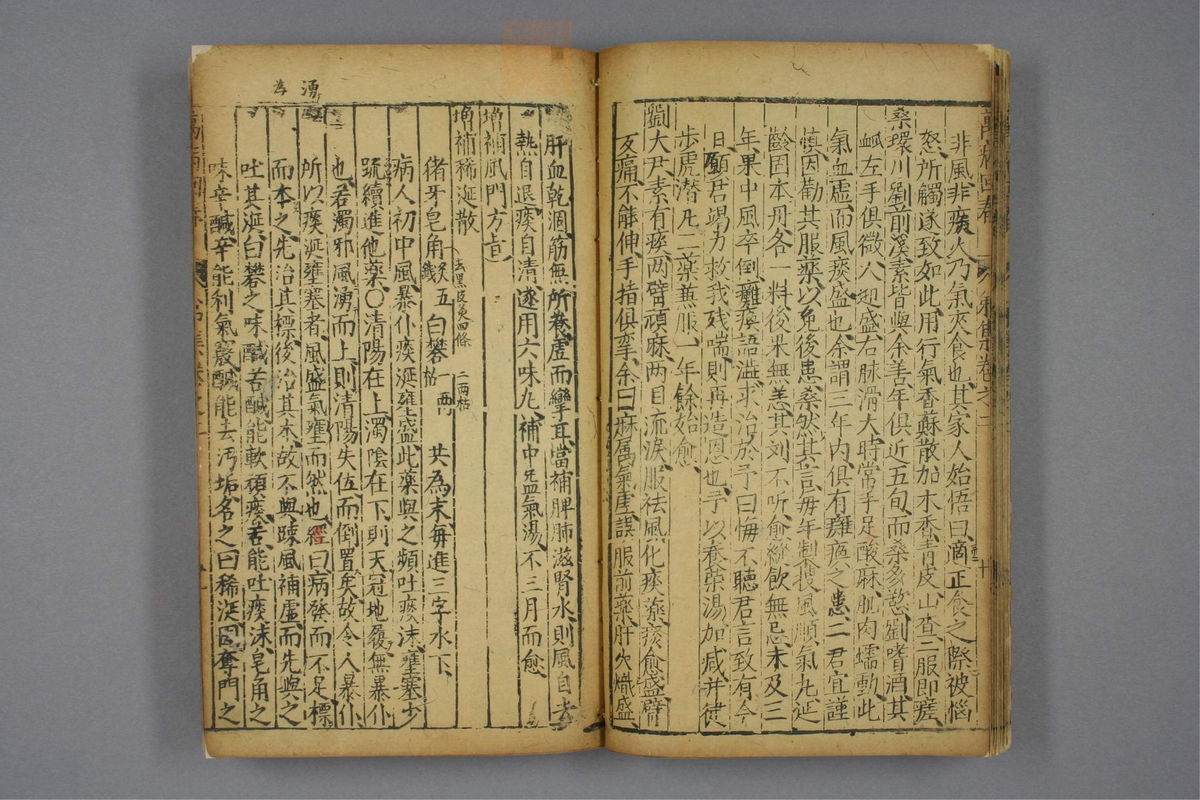 非風非痰火乃氣夾食也其家人始悟曰適正食之際被惱
怒所觸遂致如此用行氣香蘇散加木香青皮山查二服即瘥
桑環川劉前溪素皆與余善年俱近五旬而桑多慾劉嗜酒其
脉左手俱微人迎盛右脉滑大時常手足酸麻肌肉蠕動此
氣血虛而風痰盛也余謂三年內俱有癱瘓之患二君宜謹
慎因勸其服藥以免後患桑然其言每年製搜風順氣丸延
齡固本丹各一料後果無恙其刘不听愈縱飲無忌未及三
年果中風卒倒癱瘓語澁求治於予曰悔不聽君言致有今
日願君竭力救我残喘則再造恩也予以養榮湯加减并健
步虎潛凡二藥兼服一年餘始愈
劉大尹素有痰两臂頑麻两目流淚服祛風化痰藥痰愈盛臂
反痛不能伸手指俱挛余曰麻属氣虛誤服前藥肝火熾盛
肝血乾涸筋無所養虛而攣耳當補脾肺滋腎水則風自去
熱自退痰自清遂用六味丸補中益氣湯不三月而愈
增補風門方旨
增補稀涎散
猪牙皂角 去黑皮炙四條 五 白礬一两 二两枯 共為末每進三字水下
病人初中風暴仆痰涎壅盛此藥與之頻吐痰沫壅塞少
疏續進他藥〇清陽在上濁陰在下則天冠地履無暴仆
也若濁邪風湧而上則清陽失位而倒置矣故令人暴仆
所以痰涎壅塞者風盛氣壅而然也經曰病發而不足標
而本之先治其標後治其本故不與疎風補虛而先與之
吐其涎曰礬之味醎苦醎能軟頑痰苦能吐痰沫皂角之
味辛醎辛能利氣竅醎能去汚垢名之曰稀涎固奪門之
湧
為